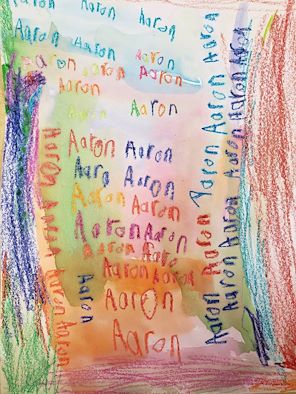 Aaron Aaron Aaron
Aaron Aaron Aaron
Aaron Aaron Aaron
Aaron
Aaron Aaron
Aaron Aaron
Aaro Aaron
Aaron Aaron
Aaron Aaron
Aaron Aaro
Aaron Aaron
Aaron
Aaron
Aaron Aaron Aaron Aaron
Aaron
Aaron Aaron Aaron Aaron
Aaron Aaron Aaron Aaron Aaron